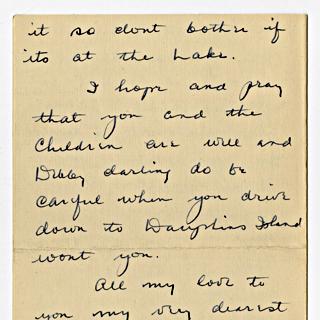 it so dont bothre if
its at the Lake.
I hope and pray
that you and the
Children are well and
Dubby darling do be
careful when you drive
down to Dauphins Island
wont you.
All my love to
you my very dearest